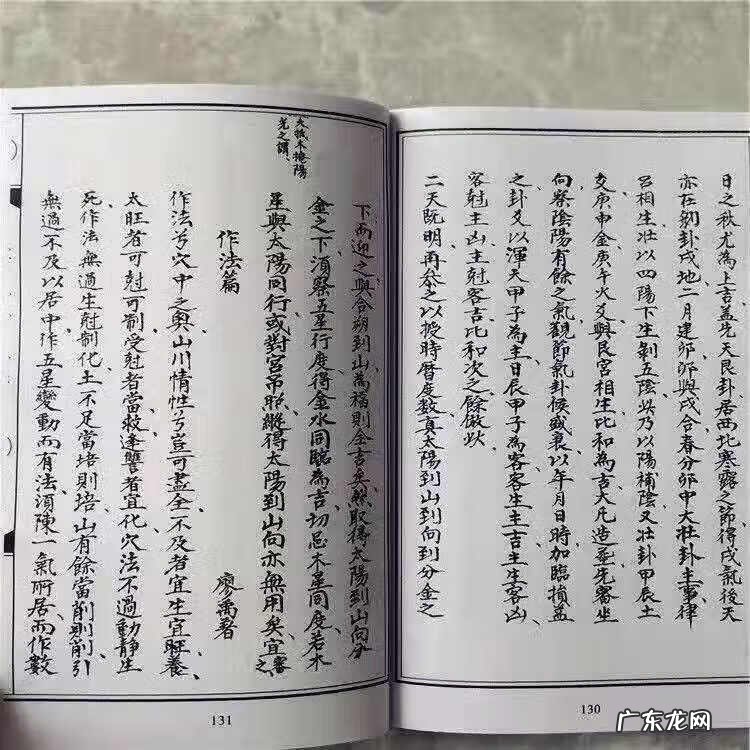 日之秋尤為上吉蓋先天艮卦居西北寒露之節得戌氣後天
亦在剝卦戌地二月建卯卯與戌合春分卯中大壯卦主事律
呂相生壯以四陽下生剝五陰此乃以陽補陰又壯卦甲辰土
交庚申金庚午火爻與艮宮相生比和為吉大凡造葬先審坐
向察陰陽有餘之氣觀節氣卦候盛衰以年月日時加臨損益
之卦爻以渾天甲子為主日辰甲子為客客生主吉主生客凶
客尅主凶主尅客吉比和次之餘倣此
二天既明再參之以授時曆度数真太陽到山到向到分金之
130
下而迎之與合朔到山為福則全吉矣然取得太陽到山向分
金之下須察五星行度得金水同臨為吉切忌木星同度若木
星與太陽同行或對宮吊照縱得太陽到山向亦無用矣宜審之
火被木掩陽
光之謂
作法篇
廖禹著
作法兮穴中之奧山川情性兮豈可盡全不及者宜生宜旺養
太旺者可尅可制受尅者當救逢讐者宜化穴法不過動靜生
死作法無過生尅制化土不足當培則培山有餘當削則削引
無過不及以居中作五星變動而有法須陳一氣所居而作數
131
广东龙网